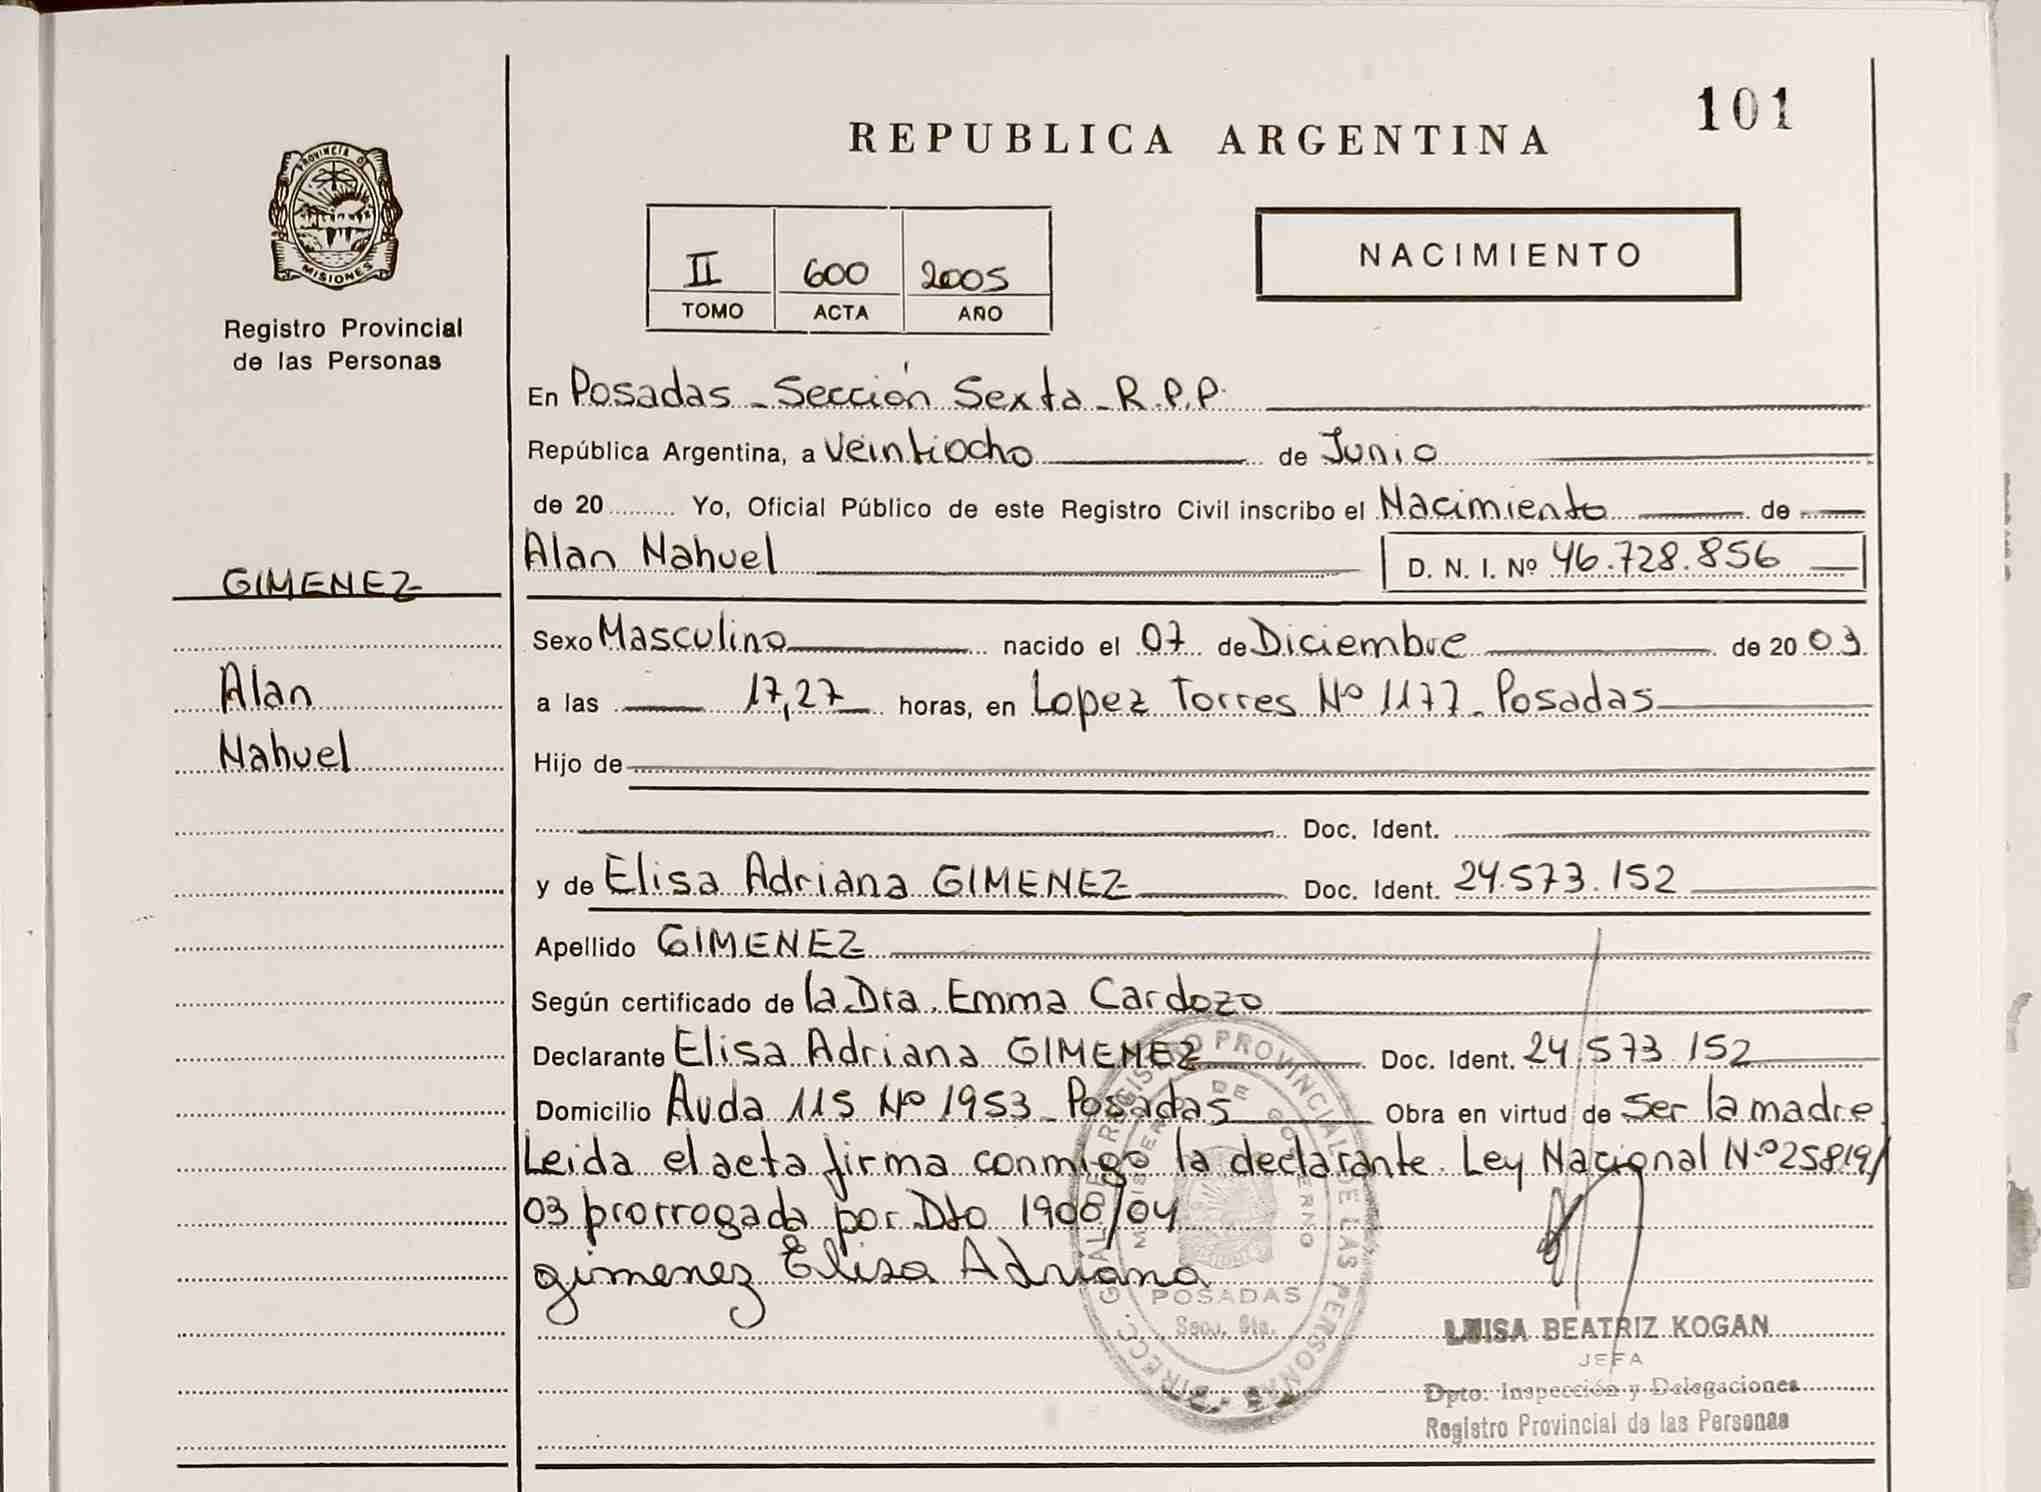 101
REPUBLICA ARGENTINA
PROVINCIA DE
MISIONES
Registro Provincial
de las Personas
II 600 2005
TOMO ACTA AÑO
NACIMIENTO
En Posadas - Sección Sexta - R.P.P.
República Argentina, a Veintiocho de Junio
de 20 Yo, Oficial Público de este Registro Civil inscribo el Nacimiento de
Alan Nahuel D. N. I. Nº 46.728.856
GIMENEZ
Sexo Masculino nacido el 07 de Diciembre de 2003
Alan
a las 17,27 horas, en Lopez Torres Nº 1177 - Posadas
Nahuel
Hijo de
Doc. Ident.
y de Elisa Adriana GIMENEZ Doc. Ident. 24.573.152
Apellido GIMENEZ
Según certificado de la Dra. Emma Cardozo
Declarante Elisa Adriana GIMENEZ Doc. Ident. 24.573.152
Domicilio Avda 115 Nº 1953 - Posadas Obra en virtud de Ser la madre
Leida el acta firma conmigo la declarante. Ley Nacional Nº 25819/
03 prorrogada por Dto 1908/04
Gimenez Elisa Adriana
DIREC. GRAL DE REGISTRO PROVINCIAL DE LAS PERSONAS
MINISTERIO DE GOBIERNO
POSADAS
LUISA BEATRIZ KOGAN
JEFA
Dpto. Inspección y Delegaciones
Registro Provincial de las Personas